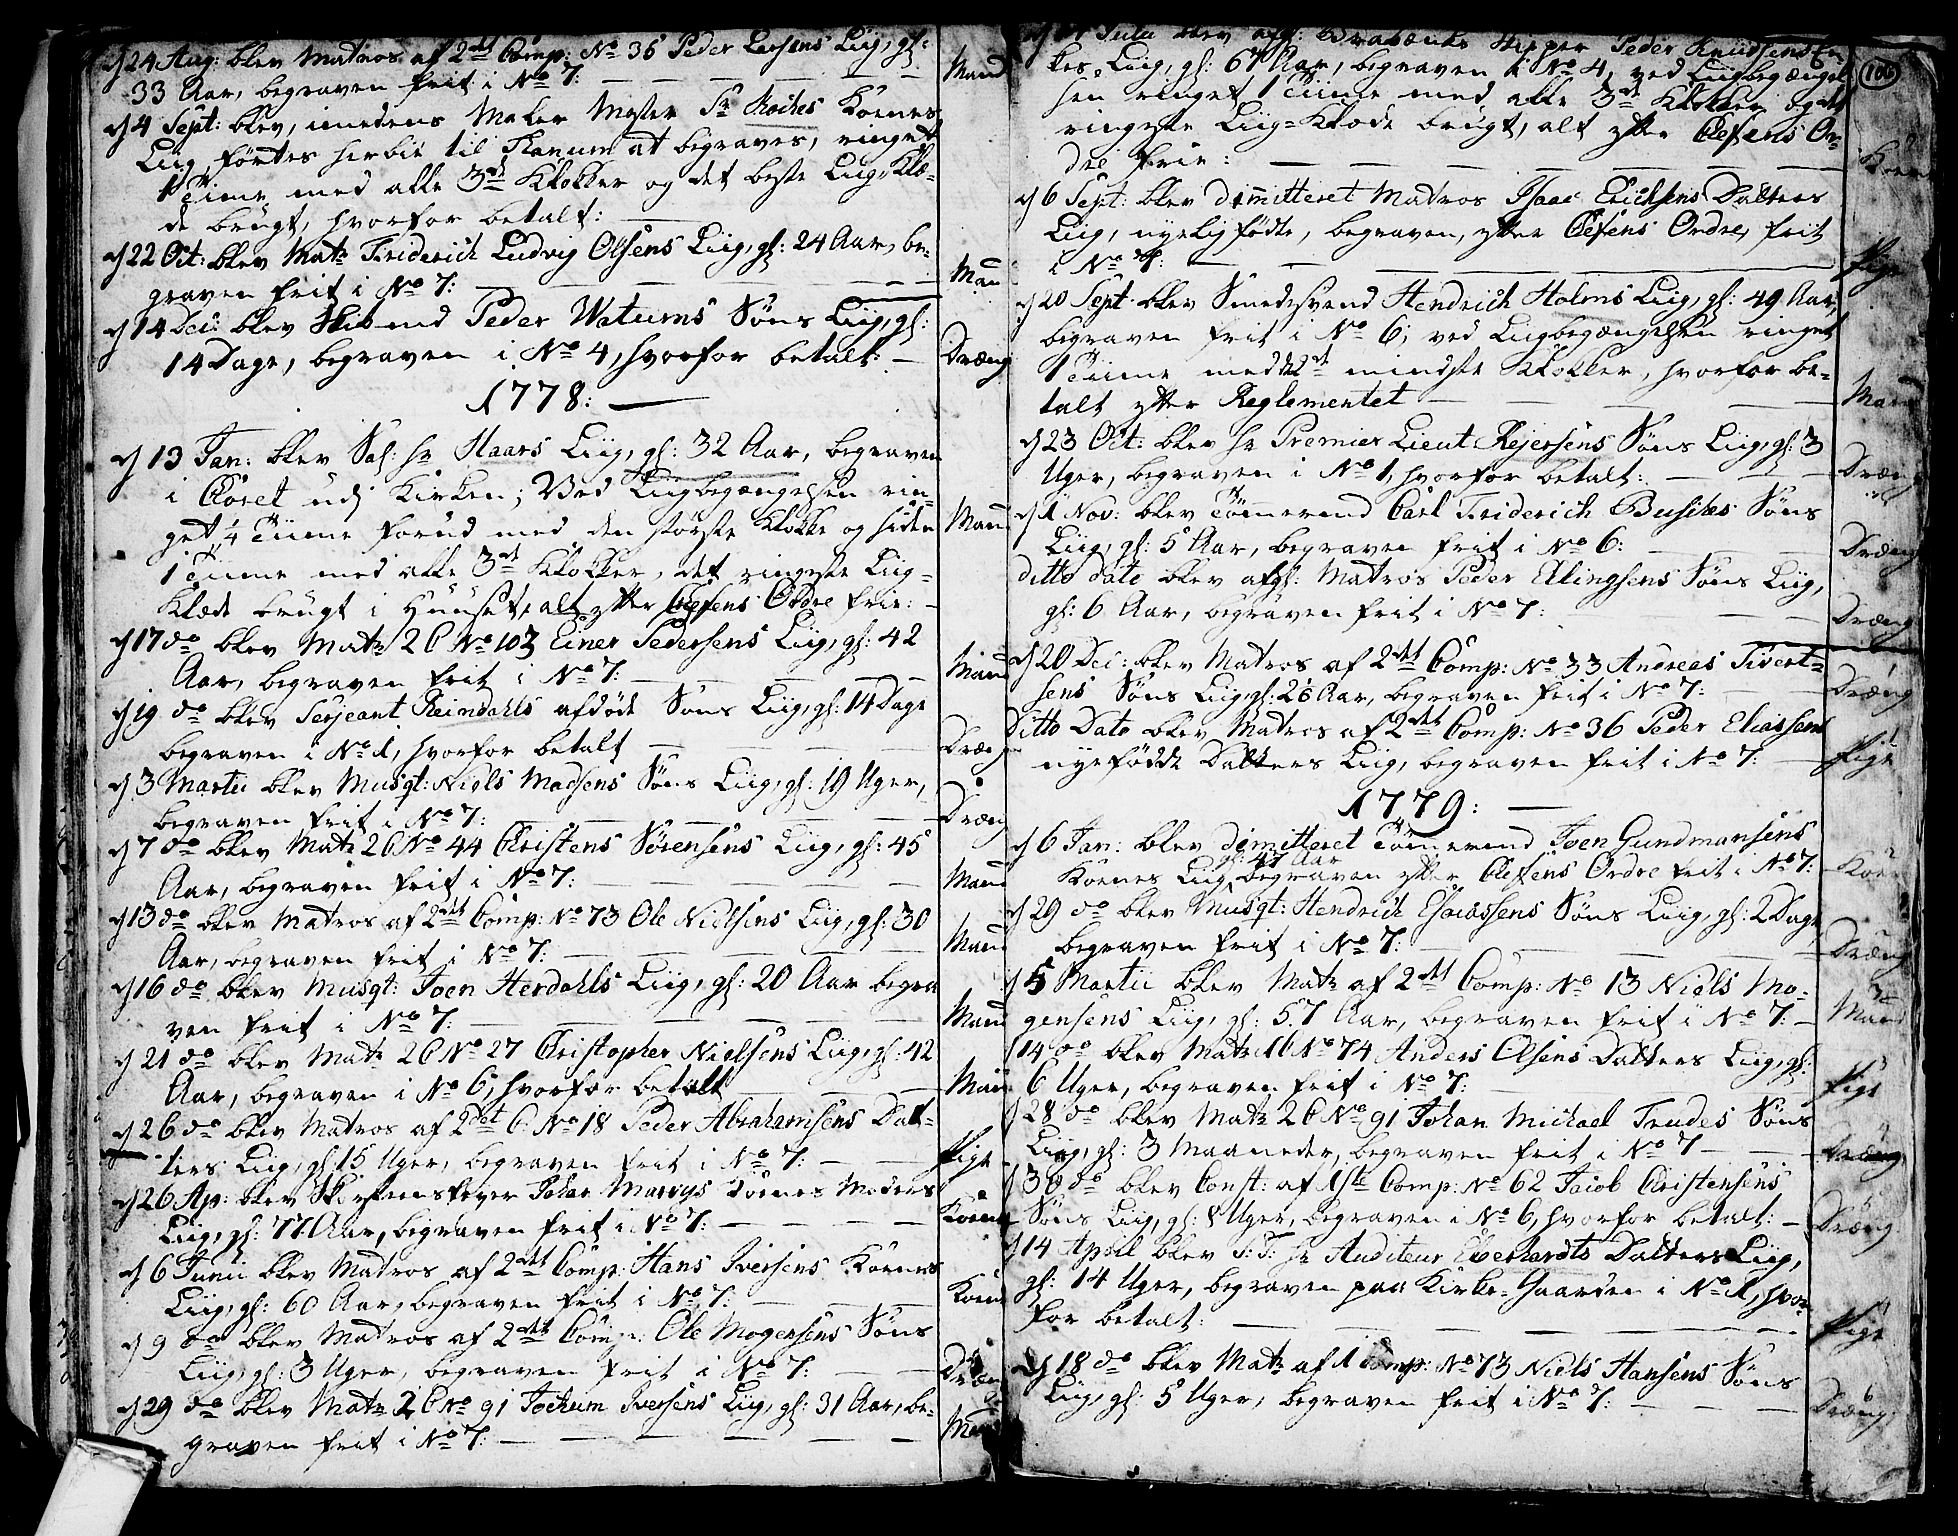 d 24 Aug: blev Matros af 2det Comp: No 36 Peder Larsens Liig, gl:
33 Aar, begraven frit i No 7: Mand
d 4 Sept: blev, imedens Maler Mester Sr Roches Koenes
Liig førtes herbie til Ranum at begraves, ringet
1 Time med alle 3de Klokker og det beste Liig-Klæ-
de brugt, hvorfor betalt:
d 22 Oct: blev Matr Friderich Ludvig Olsens Liig, gl: 24 Aar, be-
graven frit i No 7: Man
d 14 Dec: blev Peder Watums Søns Liig, gl:
14 Dage, begraven i No 4, hvorfor betalt: Dræng
1778:
d 13 Jan: blev Sal: hr Haars Liig, gl: 32 Aar, begraven
i Choret udj Kirken; Ved Liigbegængelsen rin-
get 1/4 Time forud med den største Klokke og siden Mand
1 Time med alle 3de Klokker, det ringeste Liig-
Klæde brugt i Huuset, alt efter Chefens Ordre frie:
d 17 do blev Matr 2 C No 103 Einer Pedersens Liig, gl: 42
Aar, begraven frit i No 7: Mand
d 19 do blev Serjeant Reimdahls afdøde Søns Liig, gl: 14 Dage
begraven i No 1, hvorfor betalt Dræng
d 3 Martii blev Musqt: Niels Madsens Søns Liig, gl: 19 Uger,
begraven frit i No 7: Dræng
d 7 do blev Matr 2 C No 44 Christens Sørensens Liig, gl: 45
Aar, begraven frit i No 7: Mand
d 13 do blev Matros af 2det Comp: No 73 Ole Nielsens Liig, gl: 30
Aar, begraven frit i No 7: Mand
d 16 do blev Musqt: Joen Herdahls Liig, gl: 20 Aar begra
ven frit i No 7: Mand
d 21 do blev Matr 2 C No 27 Christopher Nielsens Liig, gl: 42
Aar, begraven i No 6, hvorfor betalt Mand
d 26 do blev Matros af 2det C: No 18 Peder Abrahamsens Dat-
ters Liig, gl: 15 Uger, begraven frit i No 7: Pige
d 26 Ap: blev Johan Koenes Moders
Liig, gl: 77 Aar, begraven frit i No 7: Koene
d 6 Junii blev Matros af 2det Comp: Hans Iversens Koenes
Liig, gl: 60 Aar, begraven frit i No 7: Koene
d 9 do blev Matros af 2det Comp: Ole Mogensens Søns
Liig, gl: 3 Uger, begraven frit i No 7: Dræng
d 29 do blev Matr 2 C No 91 Jochum Iversens Liig, gl: 31 Aar, be-
graven frit i No 7: Mand
106
Julii blev afgl: Skipper Peder Knudsens En-
kes Liig, gl: 67 Aar, begraven i No 4, ved Liigbegængel-
sen ringet 1 Time med alle 3de Klokker og det
ringeste Liig-Klæde brugt, alt efter Chefens Or-
dre frie: Koene
d 6 Sept: blev dimitteret Matros Isaac Erichsens Datters
Liig, nyeligfødte, begraven, efter Chefens Ordre, frit
i No 7: Pige
d 20 Sept: blev Smedesvend Hendrich Holms Liig, gl: 49 Aar,
begraven frit i No 6; ved Liigbegængelsen ringet
1 Time med de 2de mindste Klokker, hvorfor be-
talt efter Reglementet Mand
d 23 Oct: blev hr Premier Lieut Rejersens Søns Liig, gl: 3
Uger, begraven i No 1, hvorfor betalt: Dræng
d 1 Nov: blev Tømermd Carl Friderich Busches Søns
Liig, gl: 5 Aar, begraven frit i No 6: Dræng
Ditto Dato blev afgl: Matros Peder Ellingsens Søns Liig,
gl: 6 Aar, begraven frit i No 7: Dræng
d 20 Dec: blev Matros af 2det Comp: No 33 Andreas Sivert-
sens Søns Liig, gl: 26 Aar, begraven frit i No 7: Dræng
Ditto Dato blev Matros af 2det Comp: No 36 Peder Eliassens
nyefødde Datters Liig, begraven frit i No 7: Pige
1779:
d 6 Jan: blev dimitteret Tømermd Joen Gundmansens
gl: 47 Aar
Koenes Liig, begraven efter Chefens Ordre frit i No 7: Koene
d 29 do blev Musqt: Hendrich Esaiassens Søns Liig, gl: 2 Dage,
begraven frit i No 7: Dræng
d 5 Martii blev Matr af 2det Comp: No 13 Niels Mo-
gensens Liig, gl: 57 Aar, begraven frit i No 7: Mand
d 14 do blev Matr 1 C No 74 Anders Olsens Datters Liig, gl:
6 Uger, begraven frit i No 7: Pige
d 28 do blev Matr 2 C No 91 Johan Michael Trudes Søns
Liig, gl: 3 Maaneder, begraven frit i No 7 Dræng
d 30 do blev Const: af 1ste Comp: No 62 Jacob Christensens
Søns Liig, gl: 8 Uger, begraven i No 6, hvorfor betalt: Dræng
d 14 April blev S: T: hr Auditeur Eberhardts Datters Liig,
gl: 14 Uger, begraven paa Kirke-Gaarden i No 1, hvor-
for betalt: Pige
d 18 do blev Matr af 1 Comp: No 73 Niels Hansens Søns
Liig, gl: 5 Uger, begraven frit i No 7: Dræng